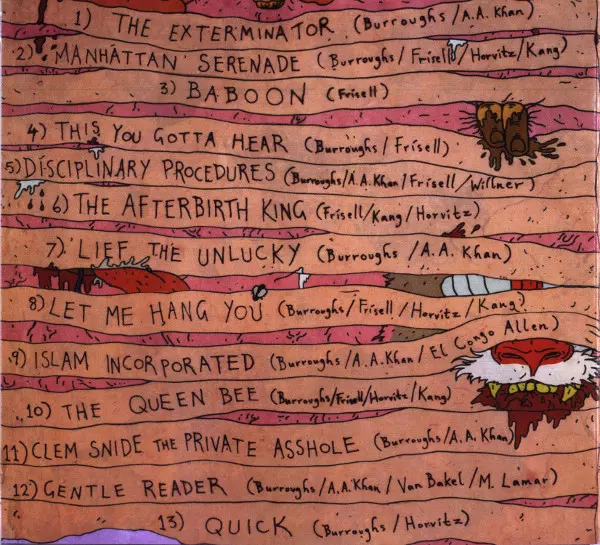 1) THE EXTERMINATOR (Burroughs/A.A. Khan)
2) MANHATTAN SERENADE (Burroughs/Frisell/Horvitz/Kang)
3) BABOON (Frisell)
4) THIS YOU GOTTA HEAR (Burroughs/Frisell)
5) DISCIPLINARY PROCEDURES (Burroughs/A.A.Khan/Frisell/Willner)
6) THE AFTERBIRTH KING (Frisell/Kang/Horvitz)
7) LIEF THE UNLUCKY (Burroughs/A.A. Khan)
8) LET ME HANG YOU (Burroughs/Frisell/Horvitz/Kang)
9) ISLAM INCORPORATED (Burroughs/A.A.Khan/El Congo Allen)
10) THE QUEEN BEE (Burroughs/Frisell/Horvitz/Kang)
11) CLEM SNIDE THE PRIVATE ASSHOLE (Burroughs/A.A. Khan)
12) GENTLE READER (Burroughs/A.A.Khan/Van Bakel/M. Lamar)
13) QUICK (Burroughs/Horvitz)